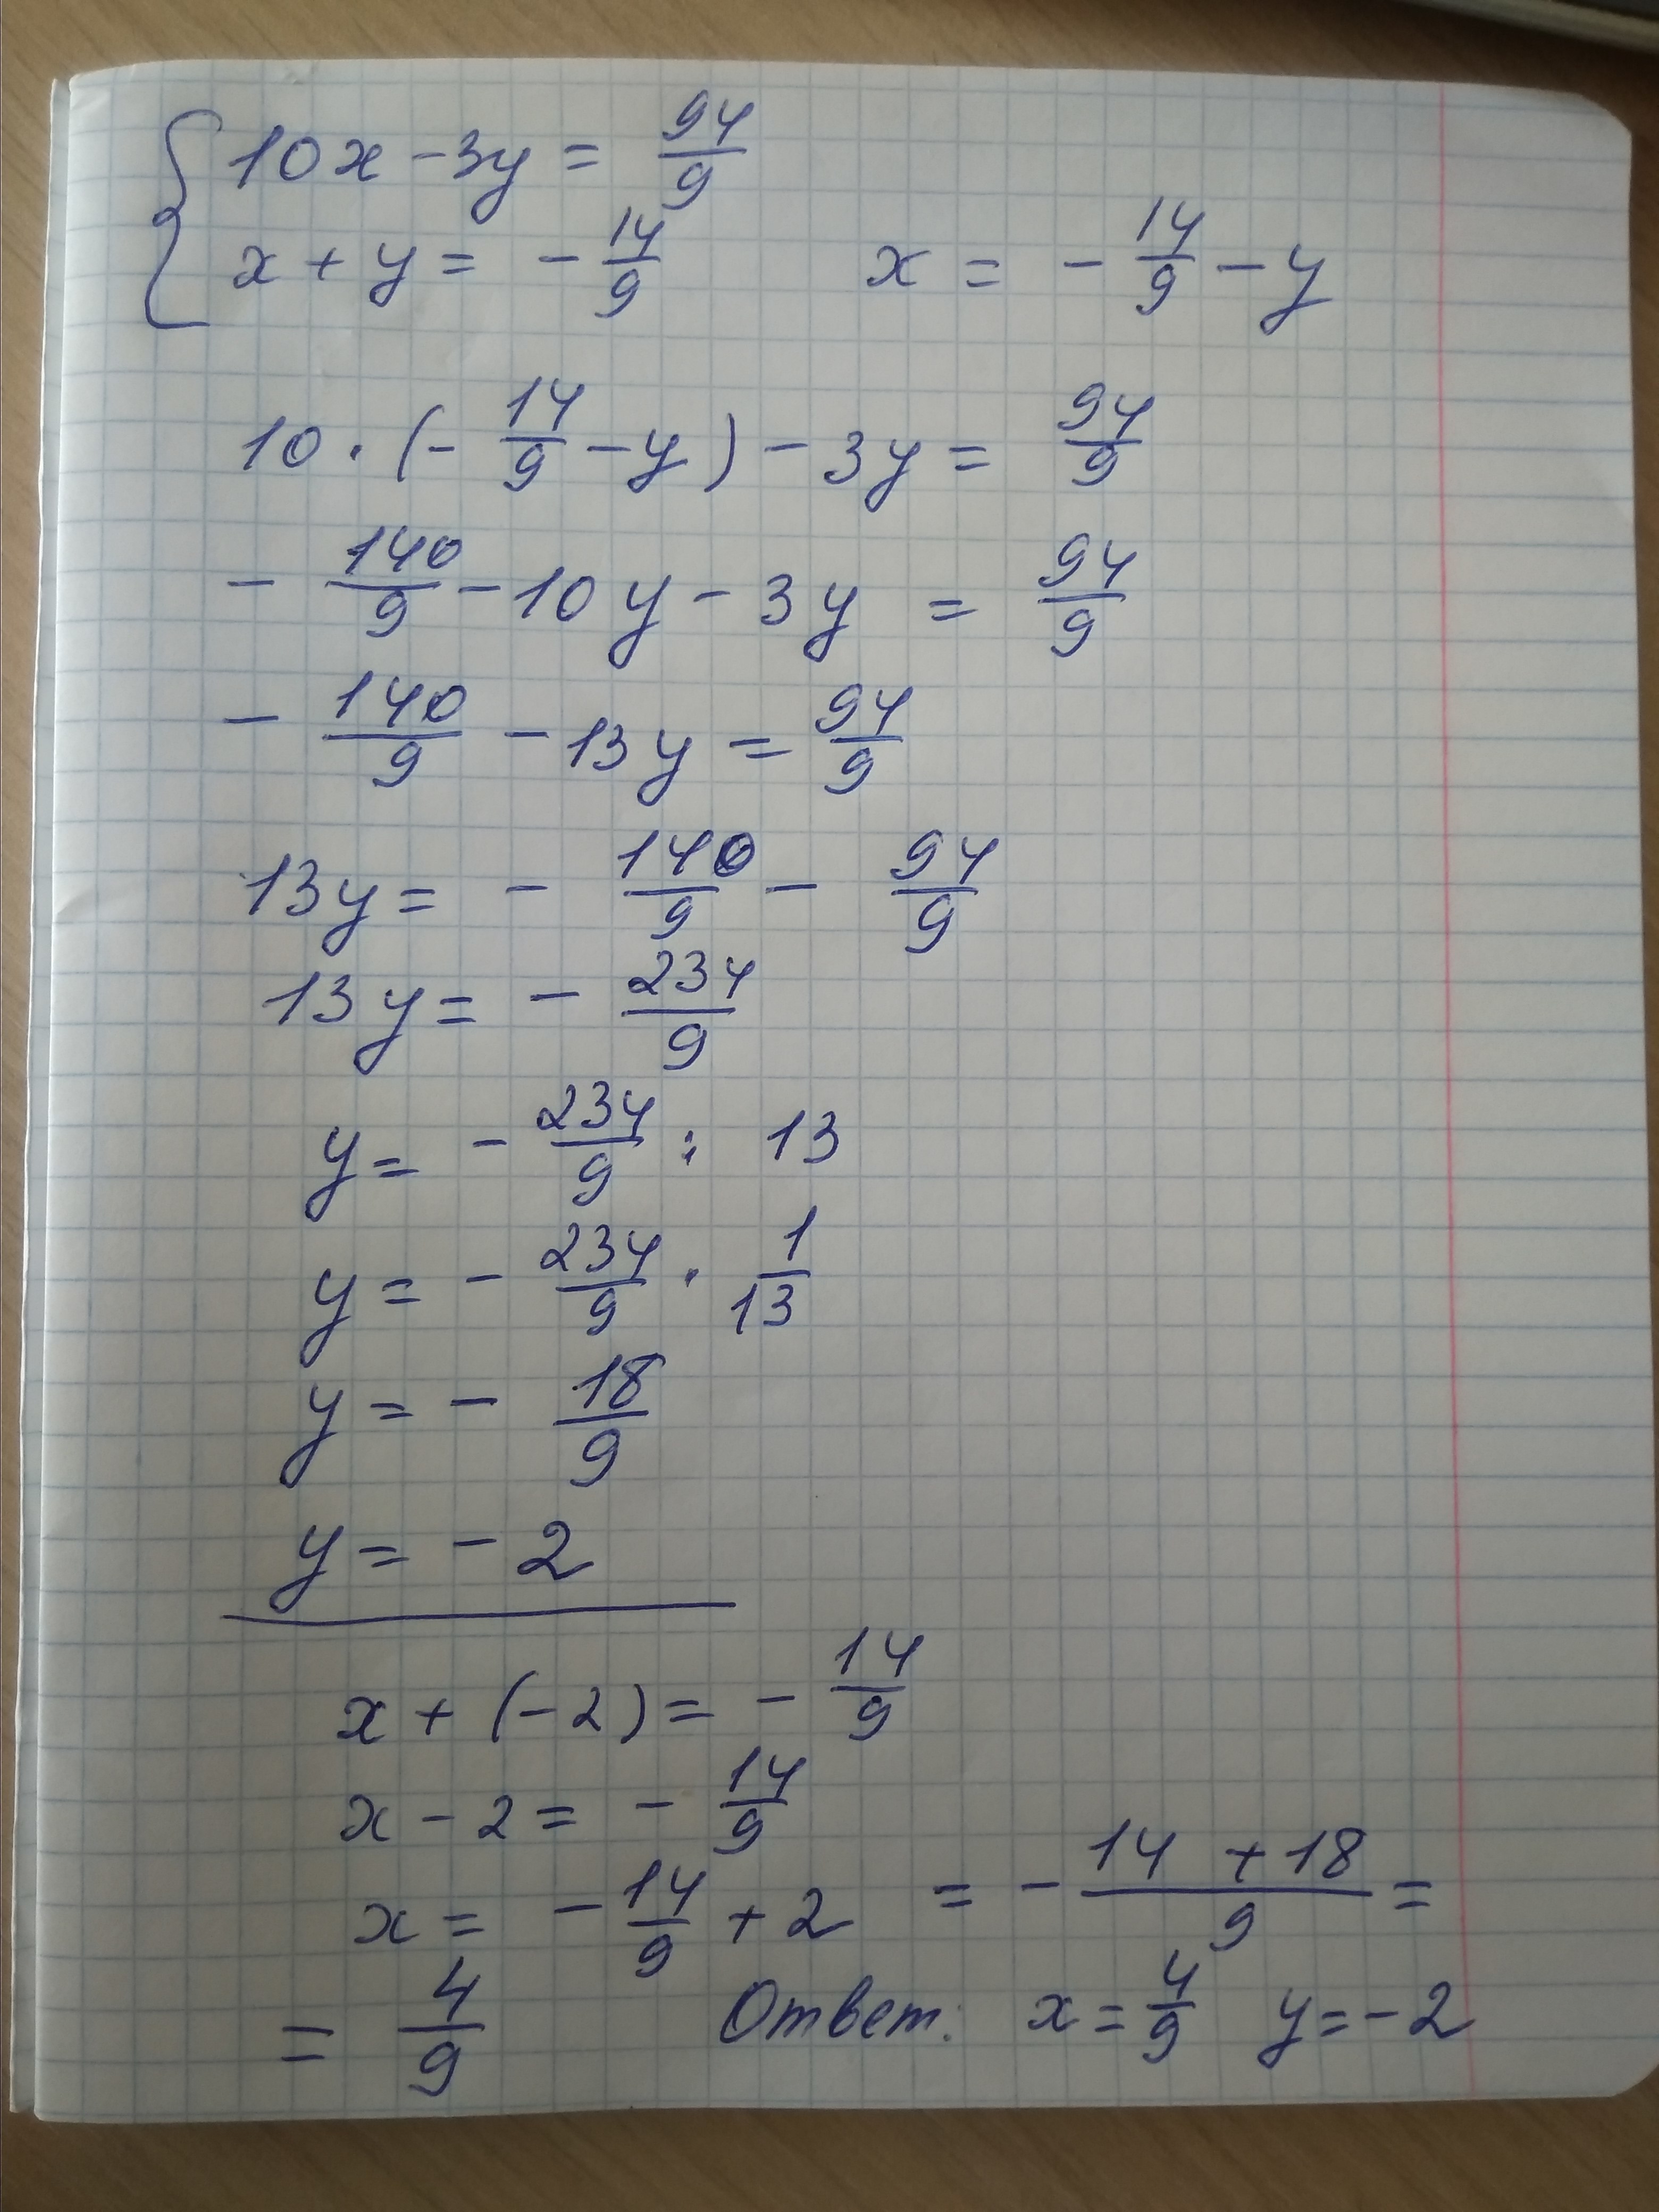 10x - 3y = 94/9
x + y = - 14/9    x = - 14/9 - y
10 · (- 14/9 - y) - 3y = 94/9
- 140/9 - 10y - 3y = 94/9
- 140/9 - 13y = 94/9
13y = - 140/9 - 94/9
13y = - 234/9
y = - 234/9 : 13
y = - 234/9 · 1/13
y = - 18/9
y = - 2
x + (-2) = - 14/9
x - 2 = - 14/9
x = - 14/9 + 2 = - (14 + 18)/9 =
= 4/9    Ответ: x = 4/9  y = -2